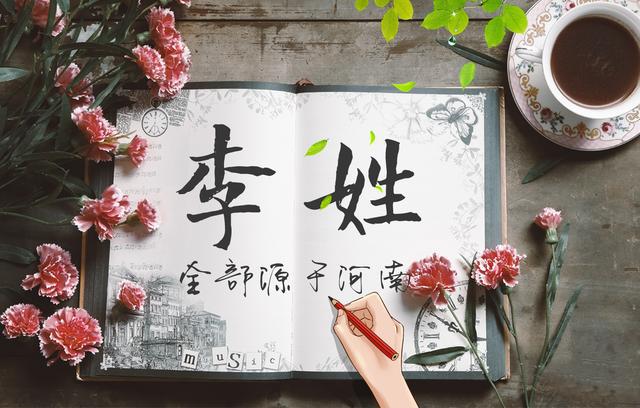 李姓
全部源于河南
music